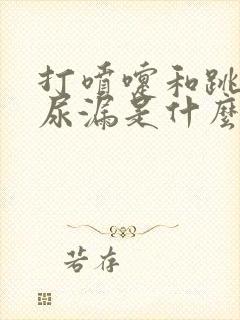 打喷嚏和跳
尿漏是什麼
若存